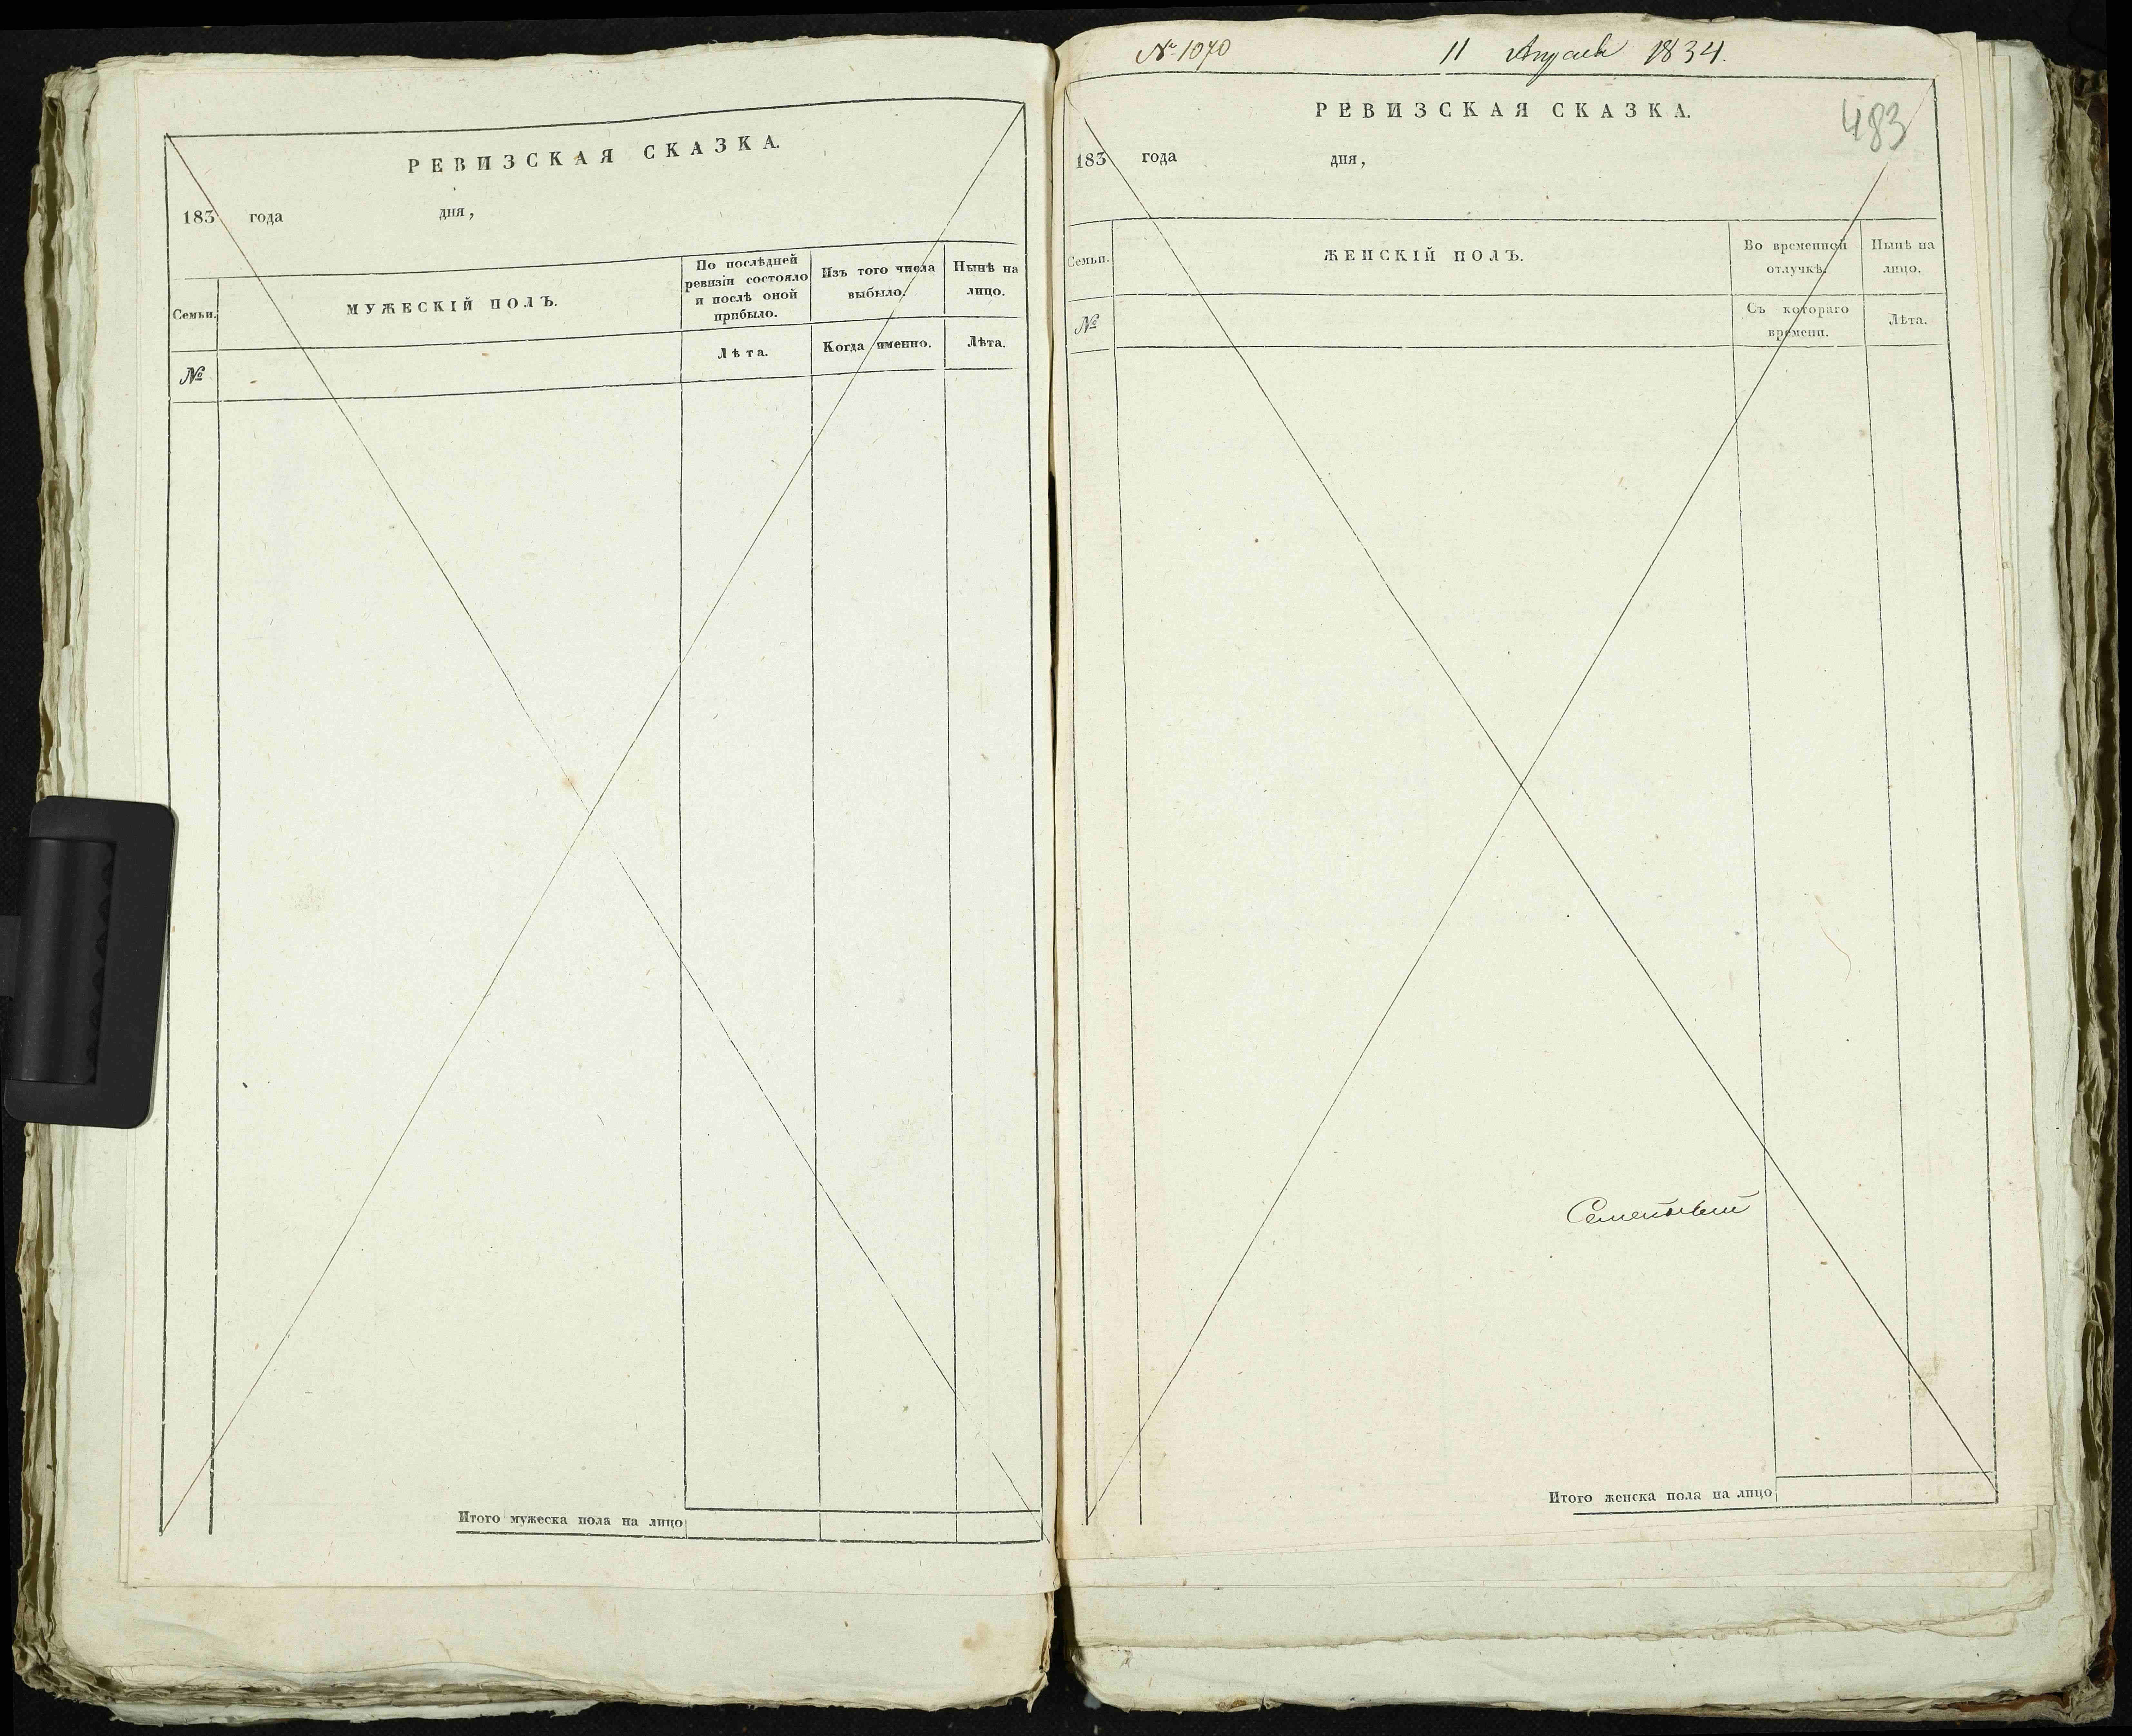 РЕВИЗСКАЯ СКАЗКА.
183 года дня,
Семьи.
МУЖЕСКІЙ ПОЛЪ.
По послѣдней ревизіи состояло и послѣ оной прибыло.
Изъ того числа выбыло.
Нынѣ на лицо.
№
Лѣта.
Когда именно.
Лѣта.
Итого мужеска пола на лицо
№ 1070 11 Апреля 1834.
РЕВИЗСКАЯ СКАЗКА.
483
183 года дня,
Семьи.
ЖЕНСКІЙ ПОЛЪ.
Во временной отлучкѣ.
Нынѣ на лицо.
№
Съ котораго времени.
Лѣта.
Итого женска пола на лицо